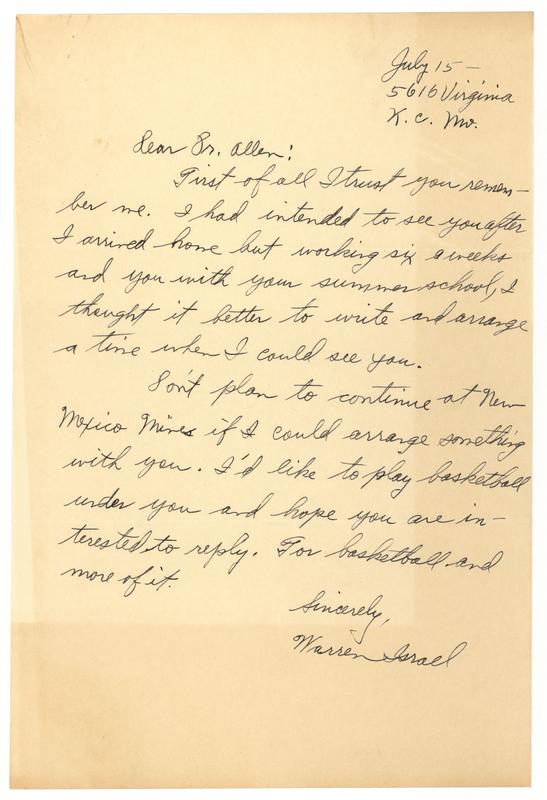 July 15 —
5616 Virginia
K. C. Mo.
Dear Dr. Allen:
First of all I trust you remem-
ber me. I had intended to see you after
I arrived home but working six a weeks
and you with your summer school, I
thought it better to write and arrange
a time when I could see you.
Don't plan to continue at New
Mexico Mines if I could arrange something
with you. I'd like to play basketball
under you and hope you are in-
terested to reply. For basketball and
more of it.
Sincerely,
Warren Israel